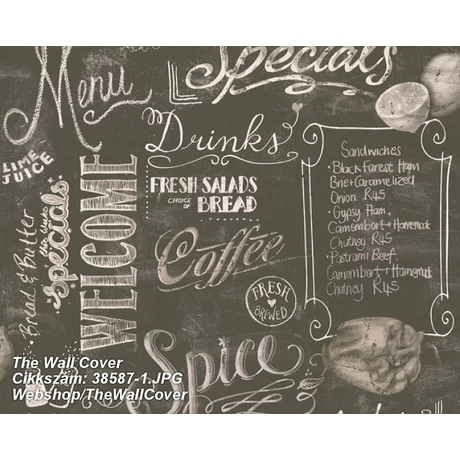 Specials
Menu
Drinks
LIME
JUICE
FRESH SALADS
CHOICE OF BREAD
Bread & Butter
this weeks
Specials
WELCOME
Coffee
FRESH
BREWED
Sandwiches
• Black Forest Ham
Brie + Caramelized
Onion R45
• Gypsy Ham,
Camembert + Homemade
Chutney R45
• Pastrami Beef,
Camembert + Homemade
Chutney R45
Spice
The Wall Cover
Cikkszám: 38587-1.JPG
Webshop/TheWallCover